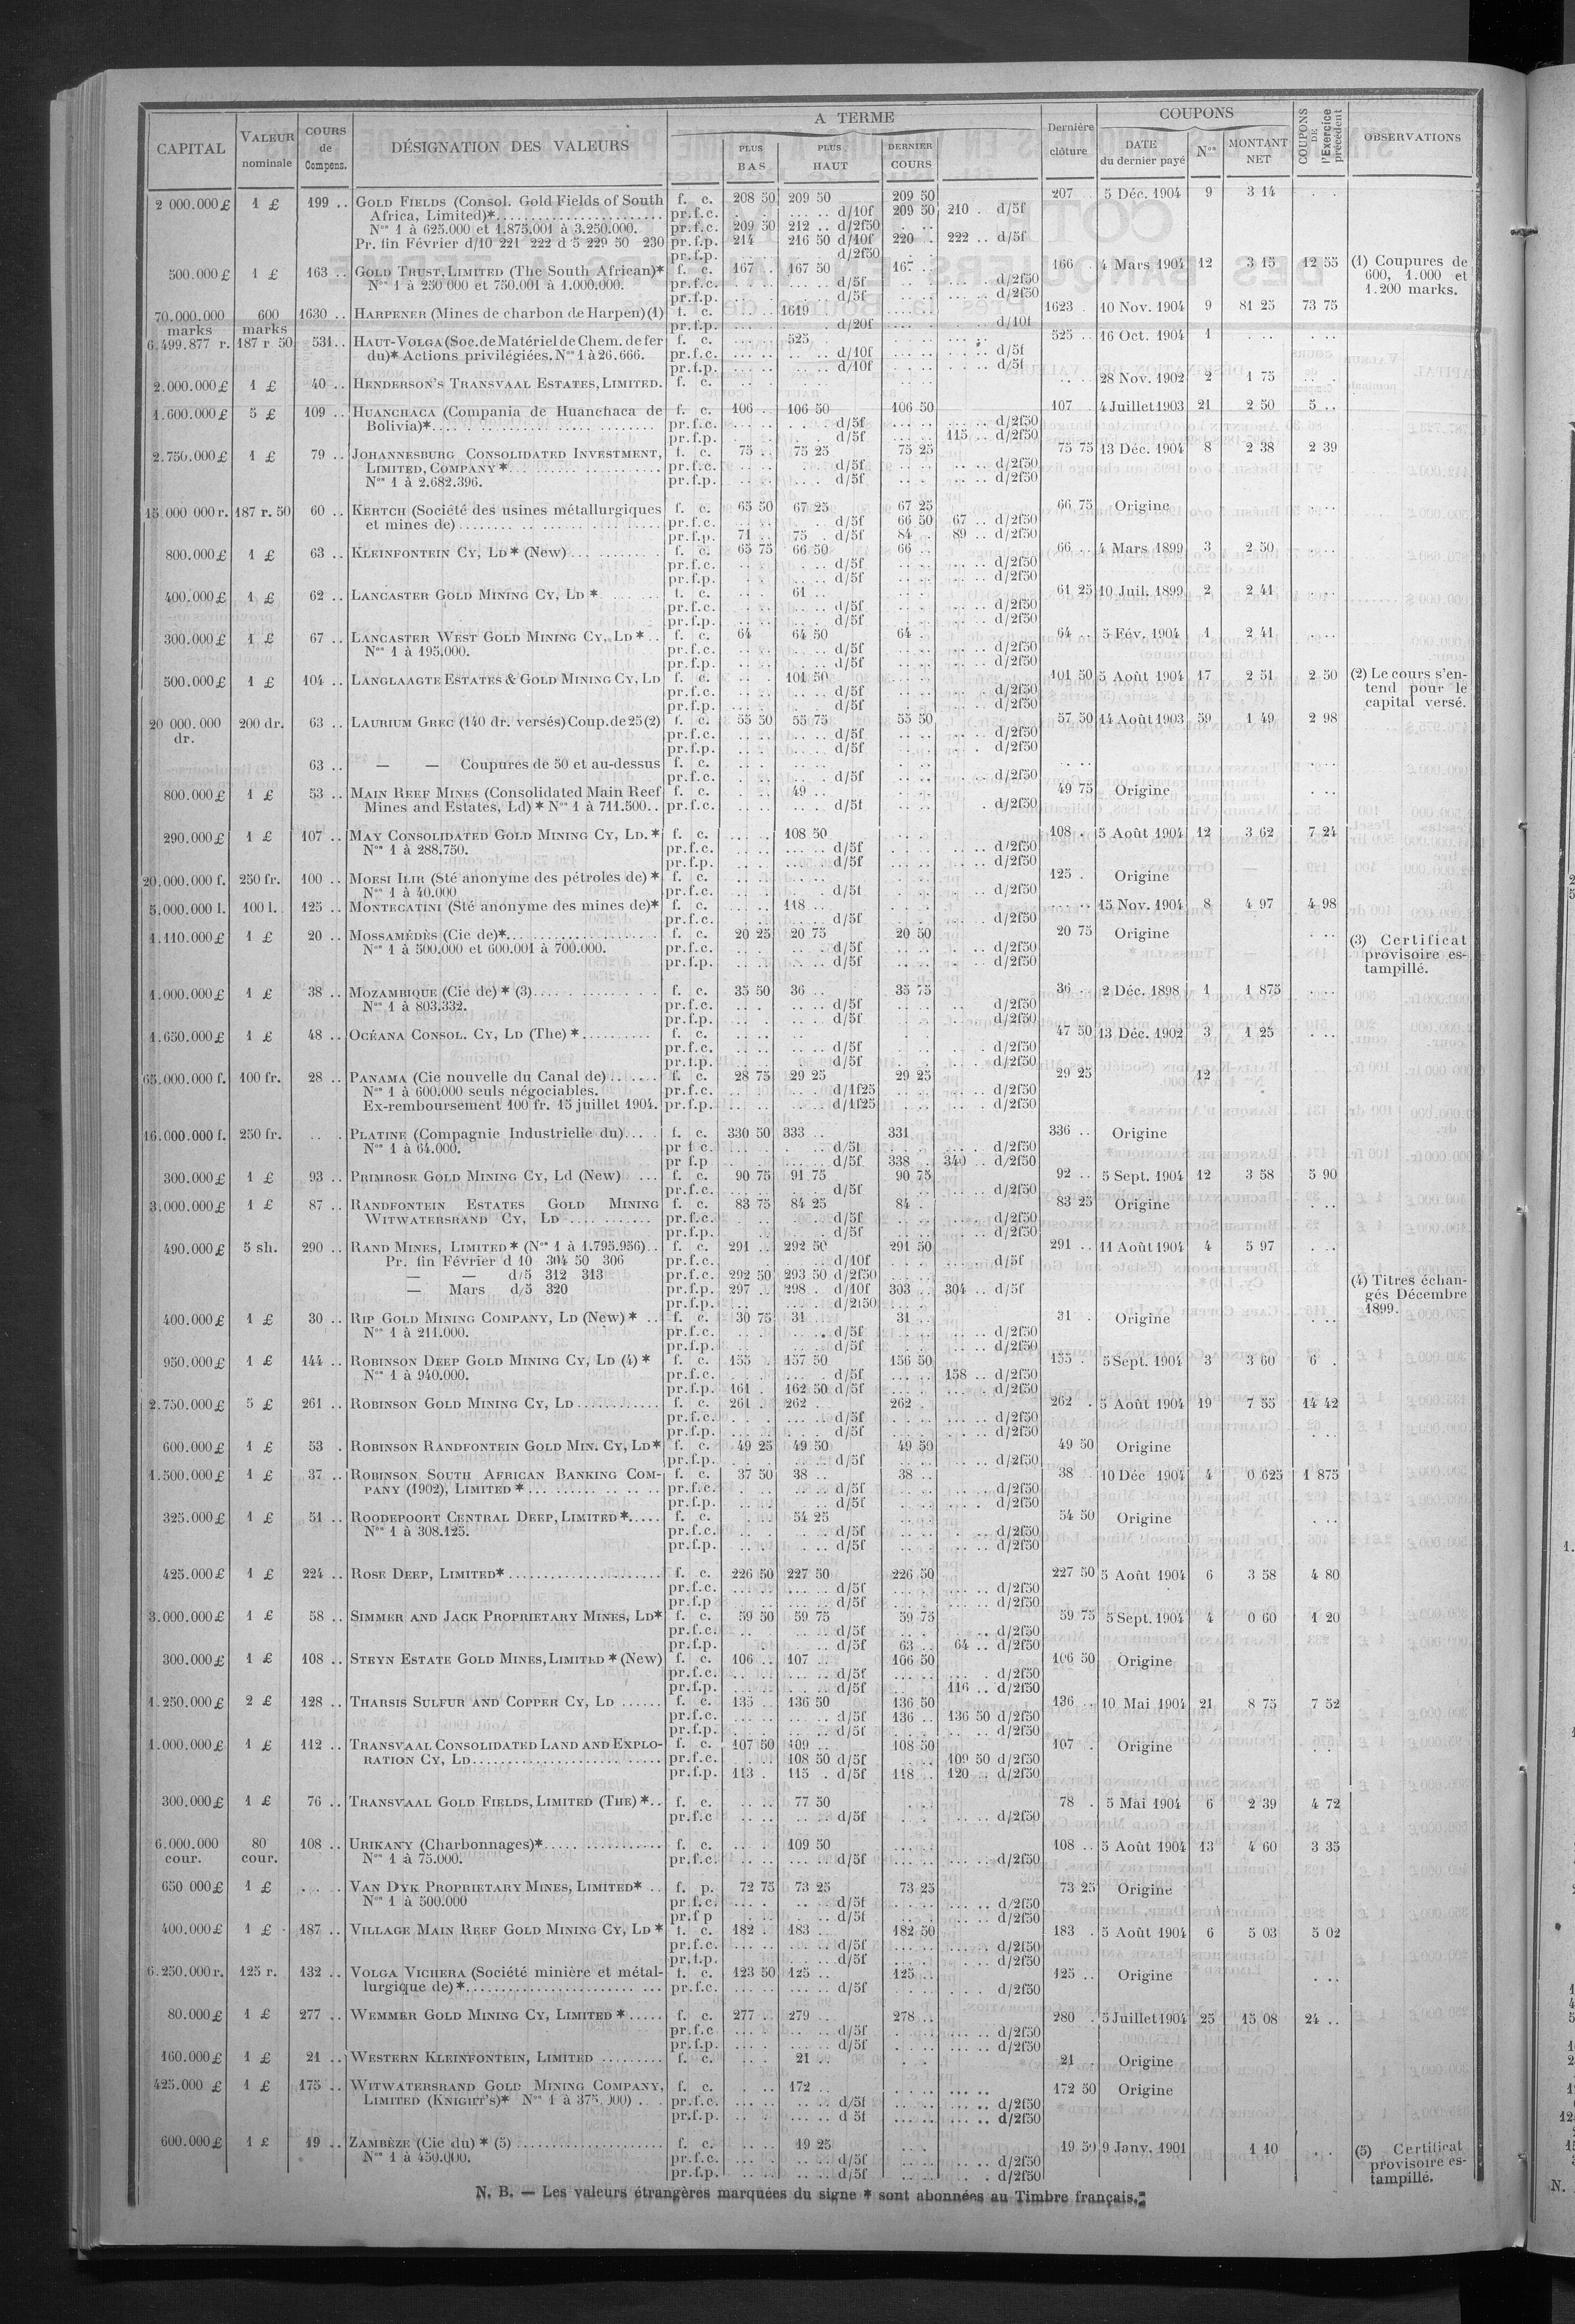 CAPITAL | VALEUR nominale | COURS de Compens. | DÉSIGNATION DES VALEURS | A TERME | PLUS BAS | PLUS HAUT | DERNIER COURS | Dernière clôture | COUPONS | DATE du dernier payé | Nos | MONTANT NET | COUPONS DE l'Exercice précédent | OBSERVATIONS
2 000.000 £ 1 £ 199 .. GOLD FIELDS (Consol. Gold Fields of South f. c. 208 50 209 50 209 50 207 5 Déc. 1904 9 3 14
Africa, Limited)* pr.f.c. d/10f 209 50 210 . d/5f
Nos 1 à 625.000 et 1.875.001 à 3.250.000. pr.f.c. 209 50 212 .. d/2f50
Pr. fin Février d/10 221 222 d 5 229 50 230 pr.f.p. 214 216 50 d/10f 220 . 222 .. d/5f
pr.f.p. d/2f50
500.000 £ 1 £ 163 .. GOLD TRUST, LIMITED (The South African)* f. c. 167 . 167 50 167 .. 166 . 4 Mars 1904 12 3 15 12 55 (1) Coupures de
Nos 1 à 250 000 et 750.001 à 1.000.000. pr.f.c. d/5f d/2f50 600, 1.000 et
pr.f.p. d/5f d/2f50 1.200 marks.
70.000.000 600 1630 .. HARPENER (Mines de charbon de Harpen) (1) f. c. 1619 1623 . 10 Nov. 1904 9 81 25 73 75
marks marks pr.f.p. d/20f d/10f
6.499.877 r. 187 r 50 531 .. HAUT-VOLGA (Soc. de Matériel de Chem. de fer f. c. 525 525 .. 16 Oct. 1904 1
du)* Actions privilégiées. Nos 1 à 26.666. pr.f.c. d/10f d/5f
pr.f.p. d/10f d/5f
2.000.000 £ 1 £ 40 .. HENDERSON'S TRANSVAAL ESTATES, LIMITED. f. c. 28 Nov. 1902 2 1 75
1.600.000 £ 5 £ 109 .. HUANCHACA (Compania de Huanchaca de f. c. 106 .. 106 50 106 50 107 4 Juillet 1903 21 2 50 5 ..
Bolivia)* pr.f.c. d/5f d/2f50
pr.f.p. d/5f 115 .. d/2f50
2.750.000 £ 1 £ 79 .. JOHANNESBURG CONSOLIDATED INVESTMENT, f. c. 75 .. 75 25 75 25 75 75 13 Déc. 1904 8 2 38 2 39
LIMITED, COMPANY * pr.f.c. d/5f d/2f50
Nos 1 à 2.682.396. pr.f.p. d/5f d/2f50
15.000 000 r. 187 r. 50 60 .. KERTCH (Société des usines métallurgiques f. c. 65 50 67 25 67 25 66 75 Origine
et mines de) pr.f.c. d/5f 66 50 67 .. d/2f50
pr.f.p. 71 .. 75 . d/5f 84 . 89 .. d/2f50
800.000 £ 1 £ 63 .. KLEINFONTEIN CY, LD * (New) f. c. 65 75 66 50 66 .. 66 .. 4 Mars 1899 3 2 50
pr.f.c. d/5f d/2f50
pr.f.p. d/5f d/2f50
400.000 £ 1 £ 62 .. LANCASTER GOLD MINING CY, LD * f. c. 61 .. 61 25 10 Juil. 1899 2 2 41
pr.f.c. d/5f d/2f50
pr.f.p. d/5f d/2f50
300.000 £ 1 £ 67 .. LANCASTER WEST GOLD MINING CY, LD * .. f. c. 64 64 50 64 . 64 .. 5 Fév. 1904 1 2 41
Nos 1 à 195.000. pr.f.c. d/5f d/2f50
pr.f.p. d/5f d/2f50
500.000 £ 1 £ 104 .. LANGLAAGTE ESTATES & GOLD MINING CY, LD f. c. 101 50 101 50 5 Août 1904 17 2 51 2 50 (2) Le cours s'en-
pr.f.c. d/5f d/2f50 tend pour le
pr.f.p. d/5f d/2f50 capital versé.
20 000.000 200 dr. 63 .. LAURIUM GREC (140 dr. versés) Coup. de 25 (2) f. c. 55 50 55 75 55 50 57 50 14 Août 1903 59 1 49 2 98
dr. pr.f.c. d/5f d/2f50
pr.f.p. d/5f d/2f50
63 .. — — Coupures de 50 et au-dessus f. c.
pr.f.c. d/5f d/2f50
800.000 £ 1 £ 53 .. MAIN REEF MINES (Consolidated Main Reef f. c. 49 .. 49 75 Origine
Mines and Estates, Ld) * Nos 1 à 711.500 .. pr.f.c. d/5f d/2f50
290.000 £ 1 £ 107 .. MAY CONSOLIDATED GOLD MINING CY, LD. * f. c. 108 50 108 . 5 Août 1904 12 3 62 7 24
Nos 1 à 288.750. pr.f.c. d/5f d/2f50
pr.f.p. d/5f d/2f50
20.000.000 f. 250 fr. 100 .. MOESI ILIR (Sté anonyme des pétroles de) * f. c. 125 . Origine
Nos 1 à 40.000 pr.f.c. d/5f d/2f50
5.000.000 l. 100 l. 125 .. MONTECATINI (Sté anonyme des mines de)* f. c. 118 .. 15 Nov. 1904 8 4 97 4 98
pr.f.c. d/5f d/2f50
1.110.000 £ 1 £ 20 .. MOSSAMÉDÈS (Cie de)* f. c. 20 25 20 75 20 50 20 75 Origine (3) Certificat
Nos 1 à 500.000 et 600.001 à 700.000. pr.f.c. d/5f d/2f50 provisoire es-
pr.f.p. d/5f d/2f50 tampillé.
1.000.000 £ 1 £ 38 .. MOZAMBIQUE (Cie de) * (3) f. c. 35 50 36 .. 35 75 36 .. 2 Déc. 1898 1 1 875
Nos 1 à 803.332. pr.f.c. d/5f d/2f50
pr.f.p. d/5f d/2f50
1.650.000 £ 1 £ 48 .. OCÉANA CONSOL. CY, LD (The) * f. c. 47 50 13 Déc. 1902 3 1 25
pr.f.c. d/5f d/2f50
pr.f.p. d/5f d/2f50
65.000.000 f. 100 fr. 28 .. PANAMA (Cie nouvelle du Canal de) f. c. 28 75 29 25 29 25 29 25 12
Nos 1 à 600.000 seuls négociables. pr.f.c. d/1f25 d/2f50
Ex-remboursement 100 fr. 15 juillet 1904. pr.f.p. d/1f25 d/2f50
16.000.000 f. 250 fr. PLATINE (Compagnie Industrielle du) f. c. 330 50 333 .. 331 336 .. Origine
Nos 1 à 64.000. pr f c. d/5f d/2f50
pr f.p d/5f 338 .. 340 .. d/2f50
300.000 £ 1 £ 93 .. PRIMROSE GOLD MINING CY, Ld (New) f. c. 90 75 91 75 90 75 92 .. 5 Sept. 1904 12 3 58 5 90
pr.f.c. d/5f d/2f50
3.000.000 £ 1 £ 87 .. RANDFONTEIN ESTATES GOLD MINING f. c. 83 75 84 25 84 . 83 25 Origine
WITWATERSRAND CY, LD pr.f.c. d/5f d/2f50
pr.f.p. d/5f d/2f50
490.000 £ 5 sh. 290 .. RAND MINES, LIMITED * (Nos 1 à 1.795.956) .. f. c. 291 .. 292 50 291 50 291 .. 11 Août 1904 4 5 97
Pr. fin Février d 10 304 50 306 pr.f.c. d/10f d/5f
— — d/5 312 313 pr.f.c. 292 50 293 50 d/2f50 (4) Titres échan-
— Mars d/5 320 pr.f.p. 297 .. 298 . d/10f 303 .. 304 .. d/5f gés Décembre
pr.f.p. d/2f50 1899.
400.000 £ 1 £ 30 .. RIP GOLD MINING COMPANY, LD (New) * .. f. c. 30 75 31 31 .. 31 . Origine
Nos 1 à 211.000. pr.f.c. d/5f d/2f50
pr.f.p. d/5f d/2f50
950.000 £ 1 £ 144 .. ROBINSON DEEP GOLD MINING CY, LD (4) * f. c. 155 . 157 50 156 50 155 . 5 Sept. 1904 3 3 60 6 .
Nos 1 à 940.000. pr.f.c. d/5f 158 .. d/2f50
pr.f.p. 161 . 162 50 d/5f d/2f50
2.750.000 £ 5 £ 261 .. ROBINSON GOLD MINING CY, LD f. c. 261 262 . 262 . 262 . 5 Août 1904 19 7 55 14 42
pr.f.c. d/5f d/2f50
pr.f.p. d/5f d/2f50
600.000 £ 1 £ 53 . ROBINSON RANDFONTEIN GOLD MIN. CY, LD* f. c. 49 25 49 50 49 50 49 50 Origine
pr.f.p. d/5f d/2f50
1.500.000 £ 1 £ 37 .. ROBINSON SOUTH AFRICAN BANKING COM- f. c. 37 50 38 .. 38 .. 38 . 10 Déc 1904 4 0 625 1 875
PANY (1902), LIMITED * pr.f.c. d/5f d/2f50
pr.f.p. d/5f d/2f50
325.000 £ 1 £ 51 .. ROODEPOORT CENTRAL DEEP, LIMITED * f. c. 54 25 54 50 Origine
Nos 1 à 308.125. pr.f.c. d/5f d/2f50
pr.f.p. d/5f d/2f50
425.000 £ 1 £ 224 .. ROSE DEEP, LIMITED* f. c. 226 50 227 50 226 50 227 50 5 Août 1904 6 3 58 4 80
pr.f.c. d/5f d/2f50
pr.f.p d/5f d/2f50
3.000.000 £ 1 £ 58 .. SIMMER AND JACK PROPRIETARY MINES, LD* f. c. 59 50 59 75 59 75 59 75 5 Sept. 1904 4 0 60 1 20
pr.f.c. d/5f d/2f50
pr.f.p. d/5f 63 .. 64 .. d/2f50
300.000 £ 1 £ 108 .. STEYN ESTATE GOLD MINES, LIMITED * (New) f. c. 106 .. 107 .. 106 50 106 50 Origine
pr.f.c. d/5f d/2f50
pr.f.p. d/5f 116 .. d/2f50
1.250.000 £ 2 £ 128 .. THARSIS SULFUR AND COPPER CY, LD f. c. 135 .. 136 50 136 50 136 .. 10 Mai 1904 21 8 75 7 52
pr.f.c. d/5f 136 .. 136 50 d/2f50
pr.f.p. d/5f d/2f50
1.000.000 £ 1 £ 112 .. TRANSVAAL CONSOLIDATED LAND AND EXPLO- f. c. 107 50 109 .. 108 50 107 . Origine
RATION CY, LD pr.f.c. 108 50 d/5f 109 50 d/2f50
pr.f.p. 113 . 115 . d/5f 118 .. 120 .. d/2f50
300.000 £ 1 £ 76 .. TRANSVAAL GOLD FIELDS, LIMITED (THE) * .. f. c. 77 50 78 . 5 Mai 1904 6 2 39 4 72
pr.f.c d/5f d/2f50
6.000.000 80 108 .. URIKANY (Charbonnages)* f. c. 109 50 108 .. 5 Août 1904 13 4 60 3 35
cour. cour. Nos 1 à 75.000. pr.f.c. d/5f d/2f50
650 000 £ 1 £ VAN DYK PROPRIETARY MINES, LIMITED* .. f. p. 72 75 73 25 73 25 73 25 Origine
Nos 1 à 500.000 pr f.c. d/5f d/2f50
pr.f p d/5f d/2f50
400.000 £ 1 £ 187 .. VILLAGE MAIN REEF GOLD MINING CY, LD * f. c. 182 . 183 .. 182 50 183 . 5 Août 1904 6 5 03 5 02
pr.f.c. d/5f d/2f50
pr.f.p. d/5f d/2f50
6.250.000 r. 125 r. 132 .. VOLGA VICHERA (Société minière et métal- f. c. 123 50 125 .. 125 .. 125 .. Origine
lurgique de) * pr.f.c. d/5f d/2f50
80.000 £ 1 £ 277 .. WEMMER GOLD MINING CY, LIMITED * f. c. 277 .. 279 .. 278 .. 280 . 5 Juillet 1904 25 15 08 24 ..
pr.f.c d/5f d/2f50
pr.f.p. d/5f d/2f50
160.000 £ 1 £ 21 .. WESTERN KLEINFONTEIN, LIMITED f. c. 21 .. 21 . Origine
425.000 £ 1 £ 175 .. WITWATERSRAND GOLD MINING COMPANY, f. c. 172 .. 172 50 Origine
LIMITED (KNIGHT'S)* Nos 1 à 375.000) pr.f.c. d/5f d/2f50
pr.f.p. d 5f d/2f50
600.000 £ 1 £ 19 .. ZAMBÈZE (Cie du) * (5) f. c. 19 25 19 50 9 Janv. 1901 1 10 (5) Certificat
Nos 1 à 450.000. pr.f.c. d/5f d/2f50 provisoire es-
pr.f.p. d/5f d/2f50 tampillé.
N. B. — Les valeurs étrangères marquées du signe * sont abonnées au Timbre français.